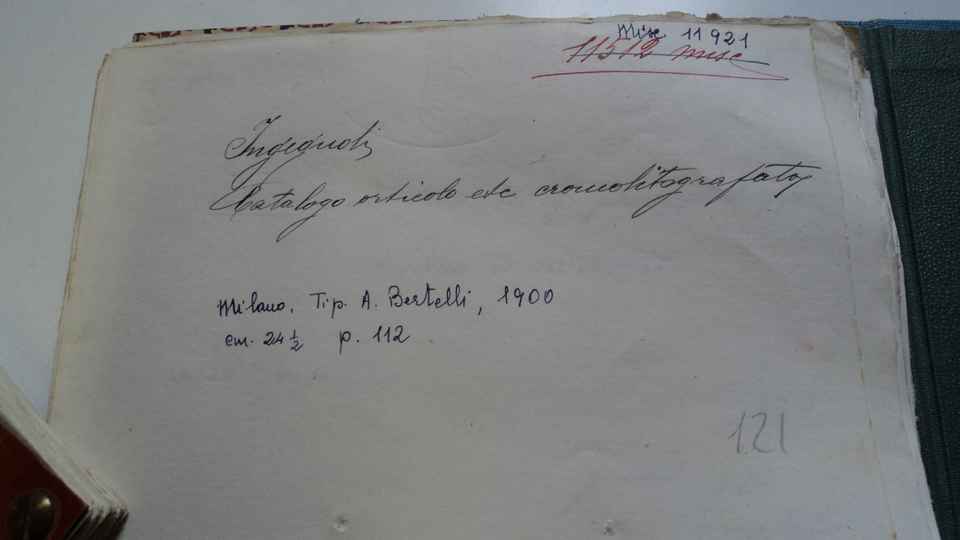 Misc 11 921
11512 misc
Ingegnoli,
Catalogo orticolo etc cromolitografato,
Milano. Tip. A. Bertelli, 1900
cm. 24 1/2 p. 112
121